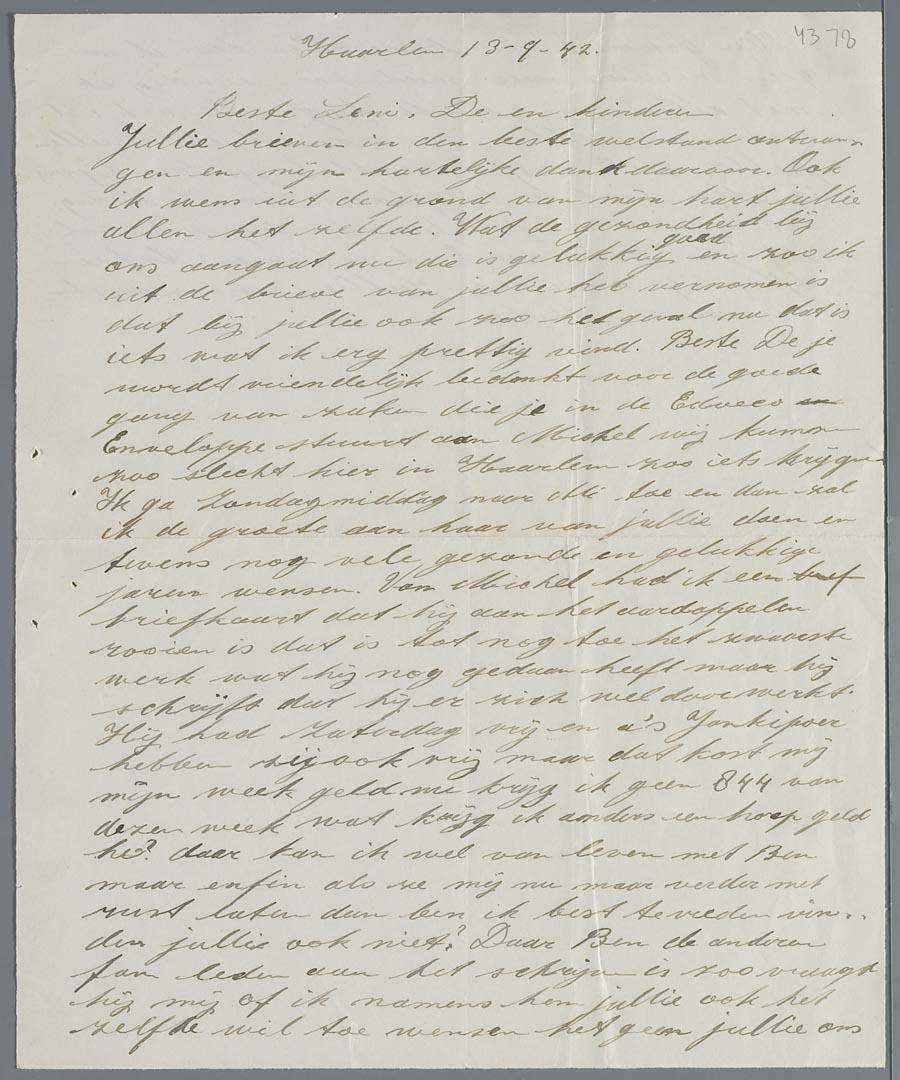 4378
Haarlem 13-9-42.
Beste Leni, De en kinderen
Jullie brieven in den beste welstand ontvan-
gen en mijn hartelijke dank daarvoor. Ook
ik wens uit de grond van mijn hart jullie
allen het zelfde. Wat de gezondheid bij
ons aangaat nu die is gelukkig goed en zoo ik
uit de brieve van jullie heb vernomen is
dat bij jullie ook zoo het geval nu dat is
iets wat ik erg prettig vind. Beste De je
wordt vriendelijk bedankt voor de goede
gang van zaken die je in de Edveco en
Enveloppe stuurt aan Michel wij kunnen
zoo slecht hier in Haarlem zoo iets krijgen
Ik ga Zondagmiddag naar toe en dan zal
ik de groete aan haar van jullie doen en
tevens nog vele gezonde en gelukkige
jaren wensen. Van Michel had ik een brief
briefkaart dat hij aan het aardappelen
rooien is dat is tot nog toe het zwaarste
werk wat hij nog gedaan heeft maar hij
schrijft dat hij er zich wel door werkt.
Hij had Zaterdag vrij en a's Jonkipoer
hebben zij ook vrij maar dat kost mij
mijn week geld nu krijg ik geen 844 van
dezen week wat krijg ik anders een hoop geld
hè? daar kan ik wel van leven met Ben
maar enfin als ze mij nu maar verder met
rust laten dan ben ik best tevreden vin-
den jullie ook niet? Daar Ben de anderen
fam leden aan het schrijven is zoo vraagt
hij mij of ik namens hem jullie ook het
zelfde wil toe wensen het geen jullie ons